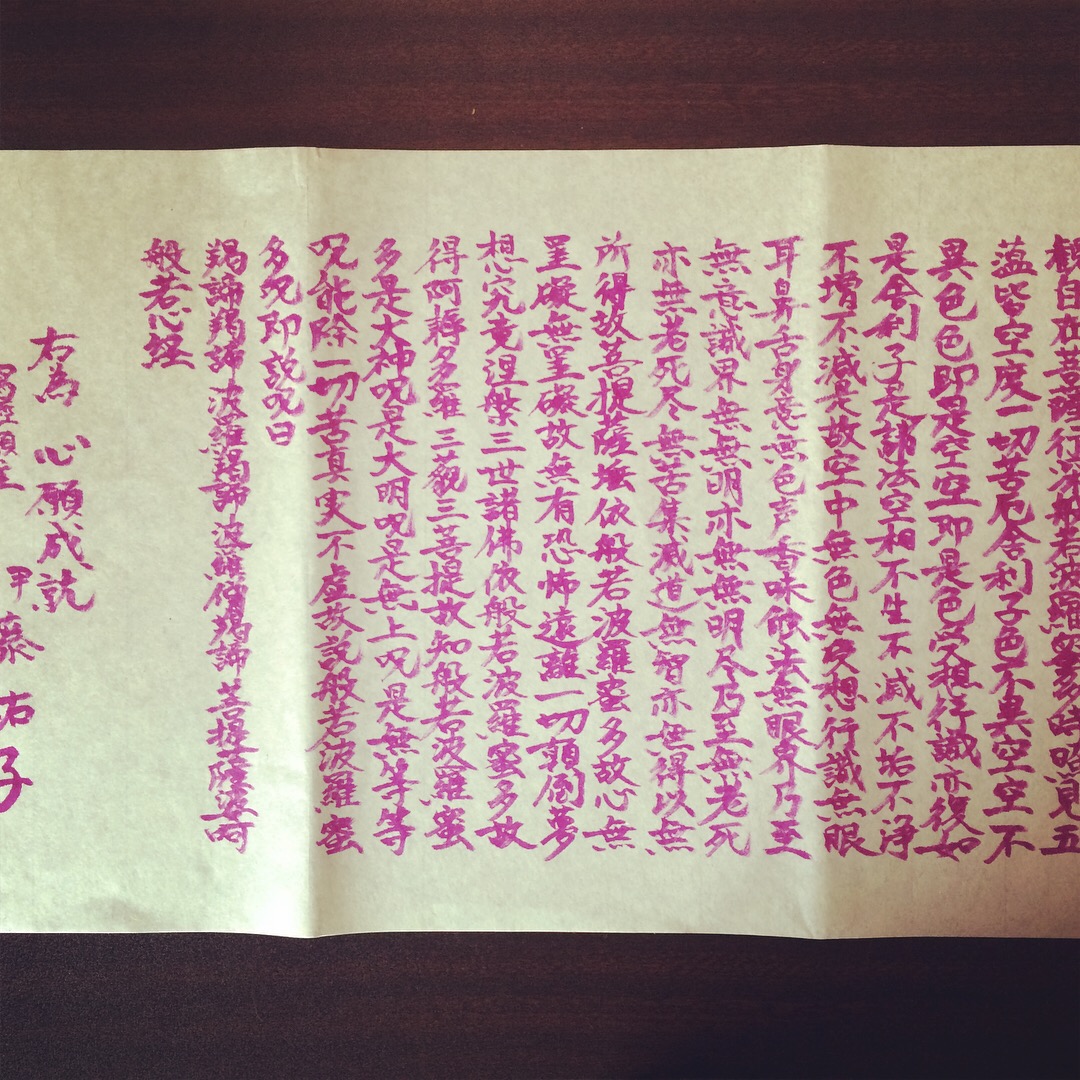 観自在菩薩行深般若波羅蜜多時照見五
蘊皆空度一切苦厄舎利子色不異空空不
異色色即是空空即是色受想行識亦復如
是舎利子是諸法空相不生不滅不垢不浄
不増不減是故空中無色無受想行識無眼
耳鼻舌身意無色声香味触法無眼界乃至
無意識界無無明亦無無明尽乃至無老死
亦無老死尽無苦集滅道無智亦無得以無
所得故菩提薩埵依般若波羅蜜多故心無
罣礙無罣礙故無有恐怖遠離一切顛倒夢
想究竟涅槃三世諸佛依般若波羅蜜多故
得阿耨多羅三藐三菩提故知般若波羅蜜
多是大神呪是大明呪是無上呪是無等等
呪能除一切苦真実不虚故説般若波羅蜜
多呪即説呪曰
羯諦羯諦波羅羯諦波羅僧羯諦菩提薩婆呵
般若心経
右為 心願成就
藤 祐子